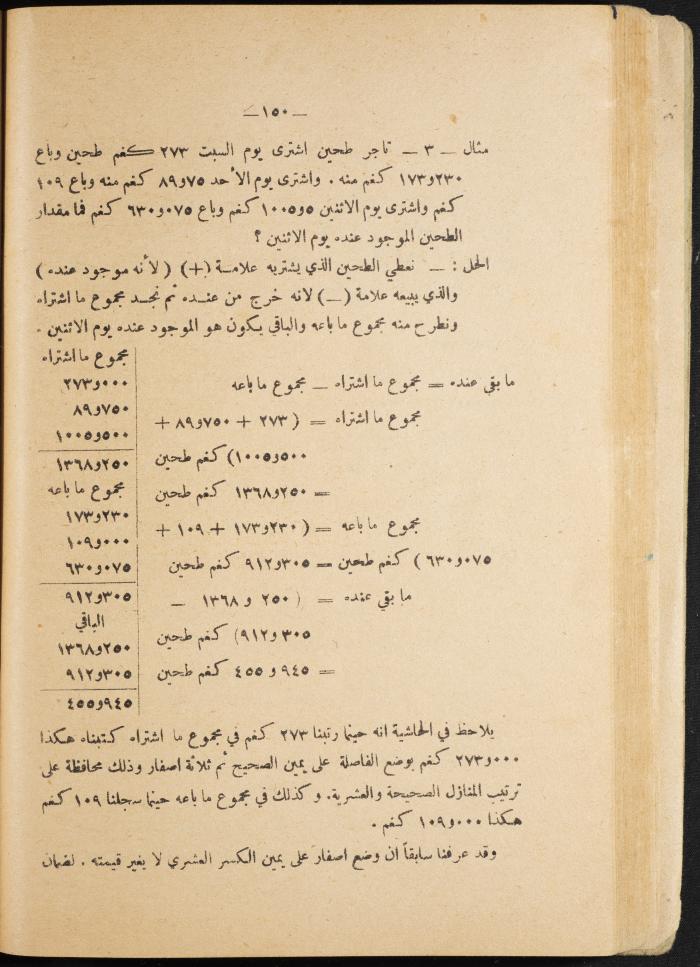 — ١٥٠ —
مثال — ٣ — تاجر طحين اشترى يوم السبت ٢٧٣ كغم طحين وباع
٢٣٠و١٧٣ كغم منه . واشترى يوم الأحد ٧٥و٨٩ كغم منه وباع ١٠٩
كغم واشترى يوم الاثنين ٥و١٠٠٥ كغم وباع ٠٧٥و٦٣٠ كغم فما مقدار
الطحين الموجود عنده يوم الاثنين ؟
الحل : — نعطي الطحين الذي يشتريه علامة (+) ( لأنه موجود عنده )
والذي يبيعه علامة (—) لانه خرج من عنده ثم نجد مجموع ما اشتراه
ونطرح منه مجموع ما باعه والباقي يكون هو الموجود عنده يوم الاثنين .
ما بقي عنده = مجموع ما اشتراه — مجموع ما باعه
مجموع ما اشتراه = ( ٢٧٣ + ٧٥٠و٨٩ +
٥٠٠و١٠٠٥) كغم طحين
= ٢٥٠و١٣٦٨ كغم طحين
مجموع ما باعه = ( ٢٣٠و١٧٣ + ١٠٩ +
٠٧٥و٦٣٠ ) كغم طحين = ٣٠٥و٩١٢ كغم طحين
ما بقي عنده = ( ٢٥٠ و ١٣٦٨ —
٣٠٥ و٩١٢) كغم طحين
= ٩٤٥ و ٤٥٥ كغم طحين
مجموع ما اشتراه
٠٠٠و٢٧٣
٧٥٠و٨٩
٥٠٠و١٠٠٥
٢٥٠و١٣٦٨
مجموع ما باعه
٢٣٠و١٧٣
٠٠٠و١٠٩
٠٧٥و٦٣٠
٣٠٥و٩١٢
الباقي
٢٥٠و١٣٦٨
٣٠٥و٩١٢
٩٤٥و٤٥٥
يلاحظ في الحاشية انه حينما رتبنا ٢٧٣ كغم في مجموع ما اشتراه كتبناه هكذا
٠٠٠و٢٧٣ كغم بوضع الفاصلة على يمين الصحيح ثم ثلاثة اصفار وذلك محافظة على
ترتيب المنازل الصحيحة والعشرية. وكذلك في مجموع ما باعه حينما سجلنا ١٠٩ كغم
هكذا ٠٠٠و١٠٩ كغم .
وقد عرفنا سابقاً ان وضع اصفار على يمين الكسر العشري لا يغير قيمته . لضمان